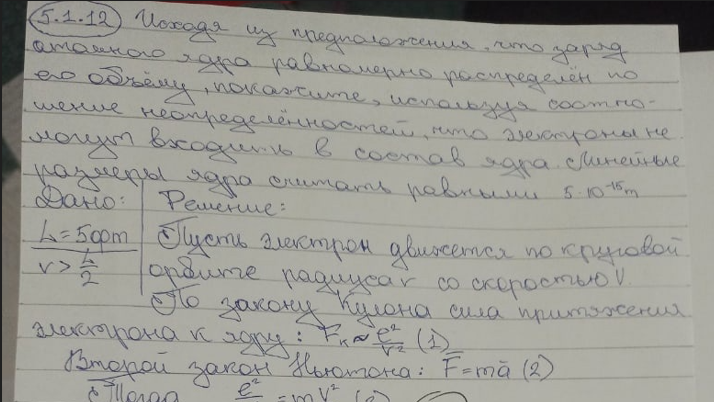 5.1.12 Исходя из предположения, что заряд
атомного ядра равномерно распределён по
его объёму, покажите, используя соотно-
шение неопределённостей, что электроны не
могут входить в состав ядра. Линейные
размеры ядра считать равными 5·10⁻¹⁵m
Дано: Решение:
L=5фm Пусть электрон движется по круговой
r>L/2 орбите радиуса r со скоростью V.
По закону Кулона сила притяжения
электрона к ядру: Fк≈e²/r² (1)
Второй закон Ньютона: F̄=mā (2)
Тогда e² =mV²